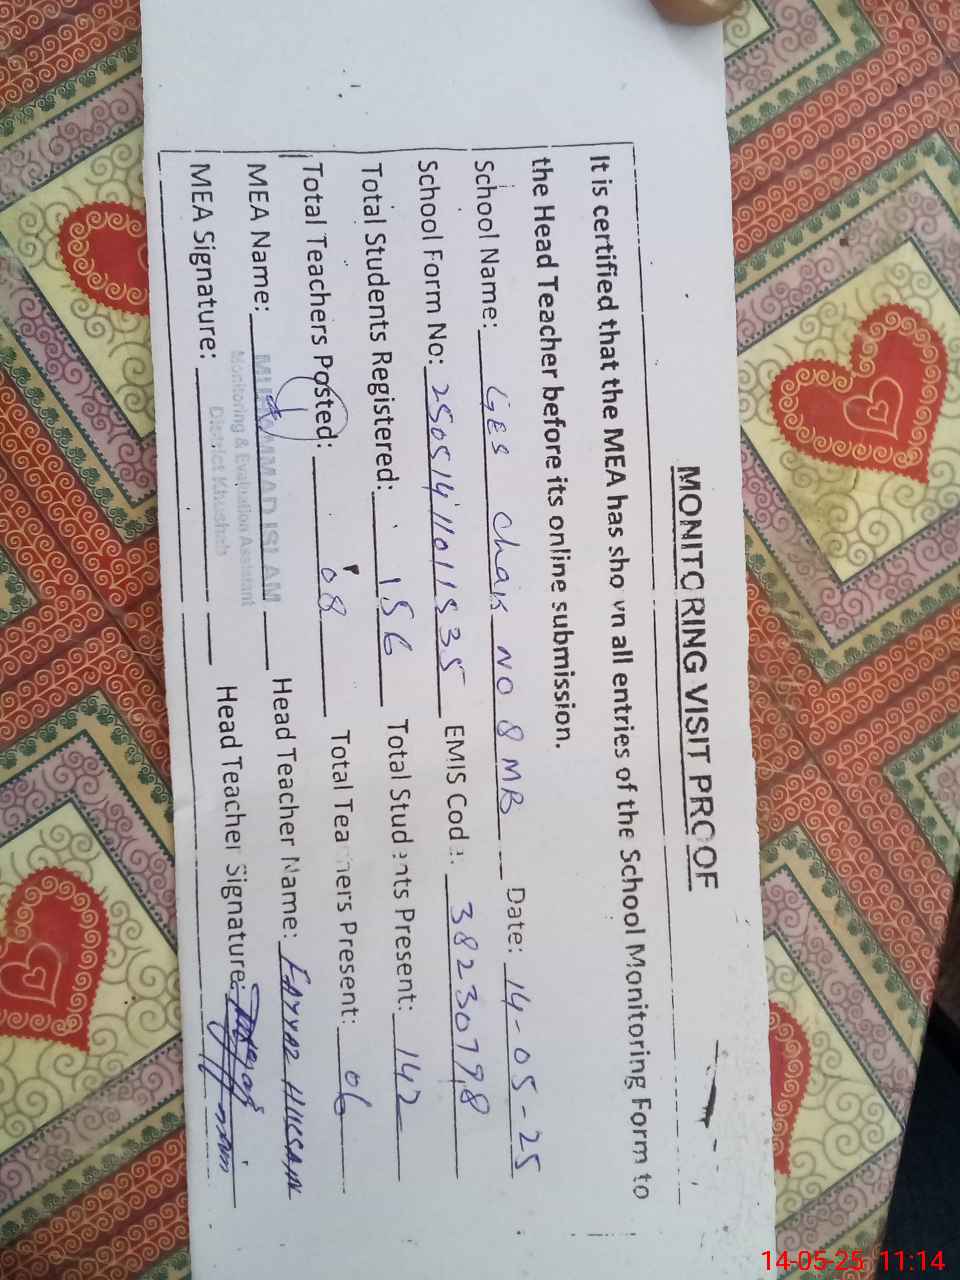 MONITORING VISIT PROOF
It is certified that the MEA has shown all entries of the School Monitoring Form to
the Head Teacher before its online submission.
School Name: GES Chak NO 8 MB Date: 14-05-25
School Form No: 250514110111535 EMIS Code: 38230798
Total Students Registered: 156 Total Students Present: 142
Total Teachers Posted: 08 Total Teachers Present: 06
MEA Name: MUHAMMAD ISLAM Head Teacher Name: FAYYAZ HUSSAIN
Monitoring & Evaluation Assistant
District Khushab
MEA Signature: Head Teacher Signature:
14-05-25 11:14